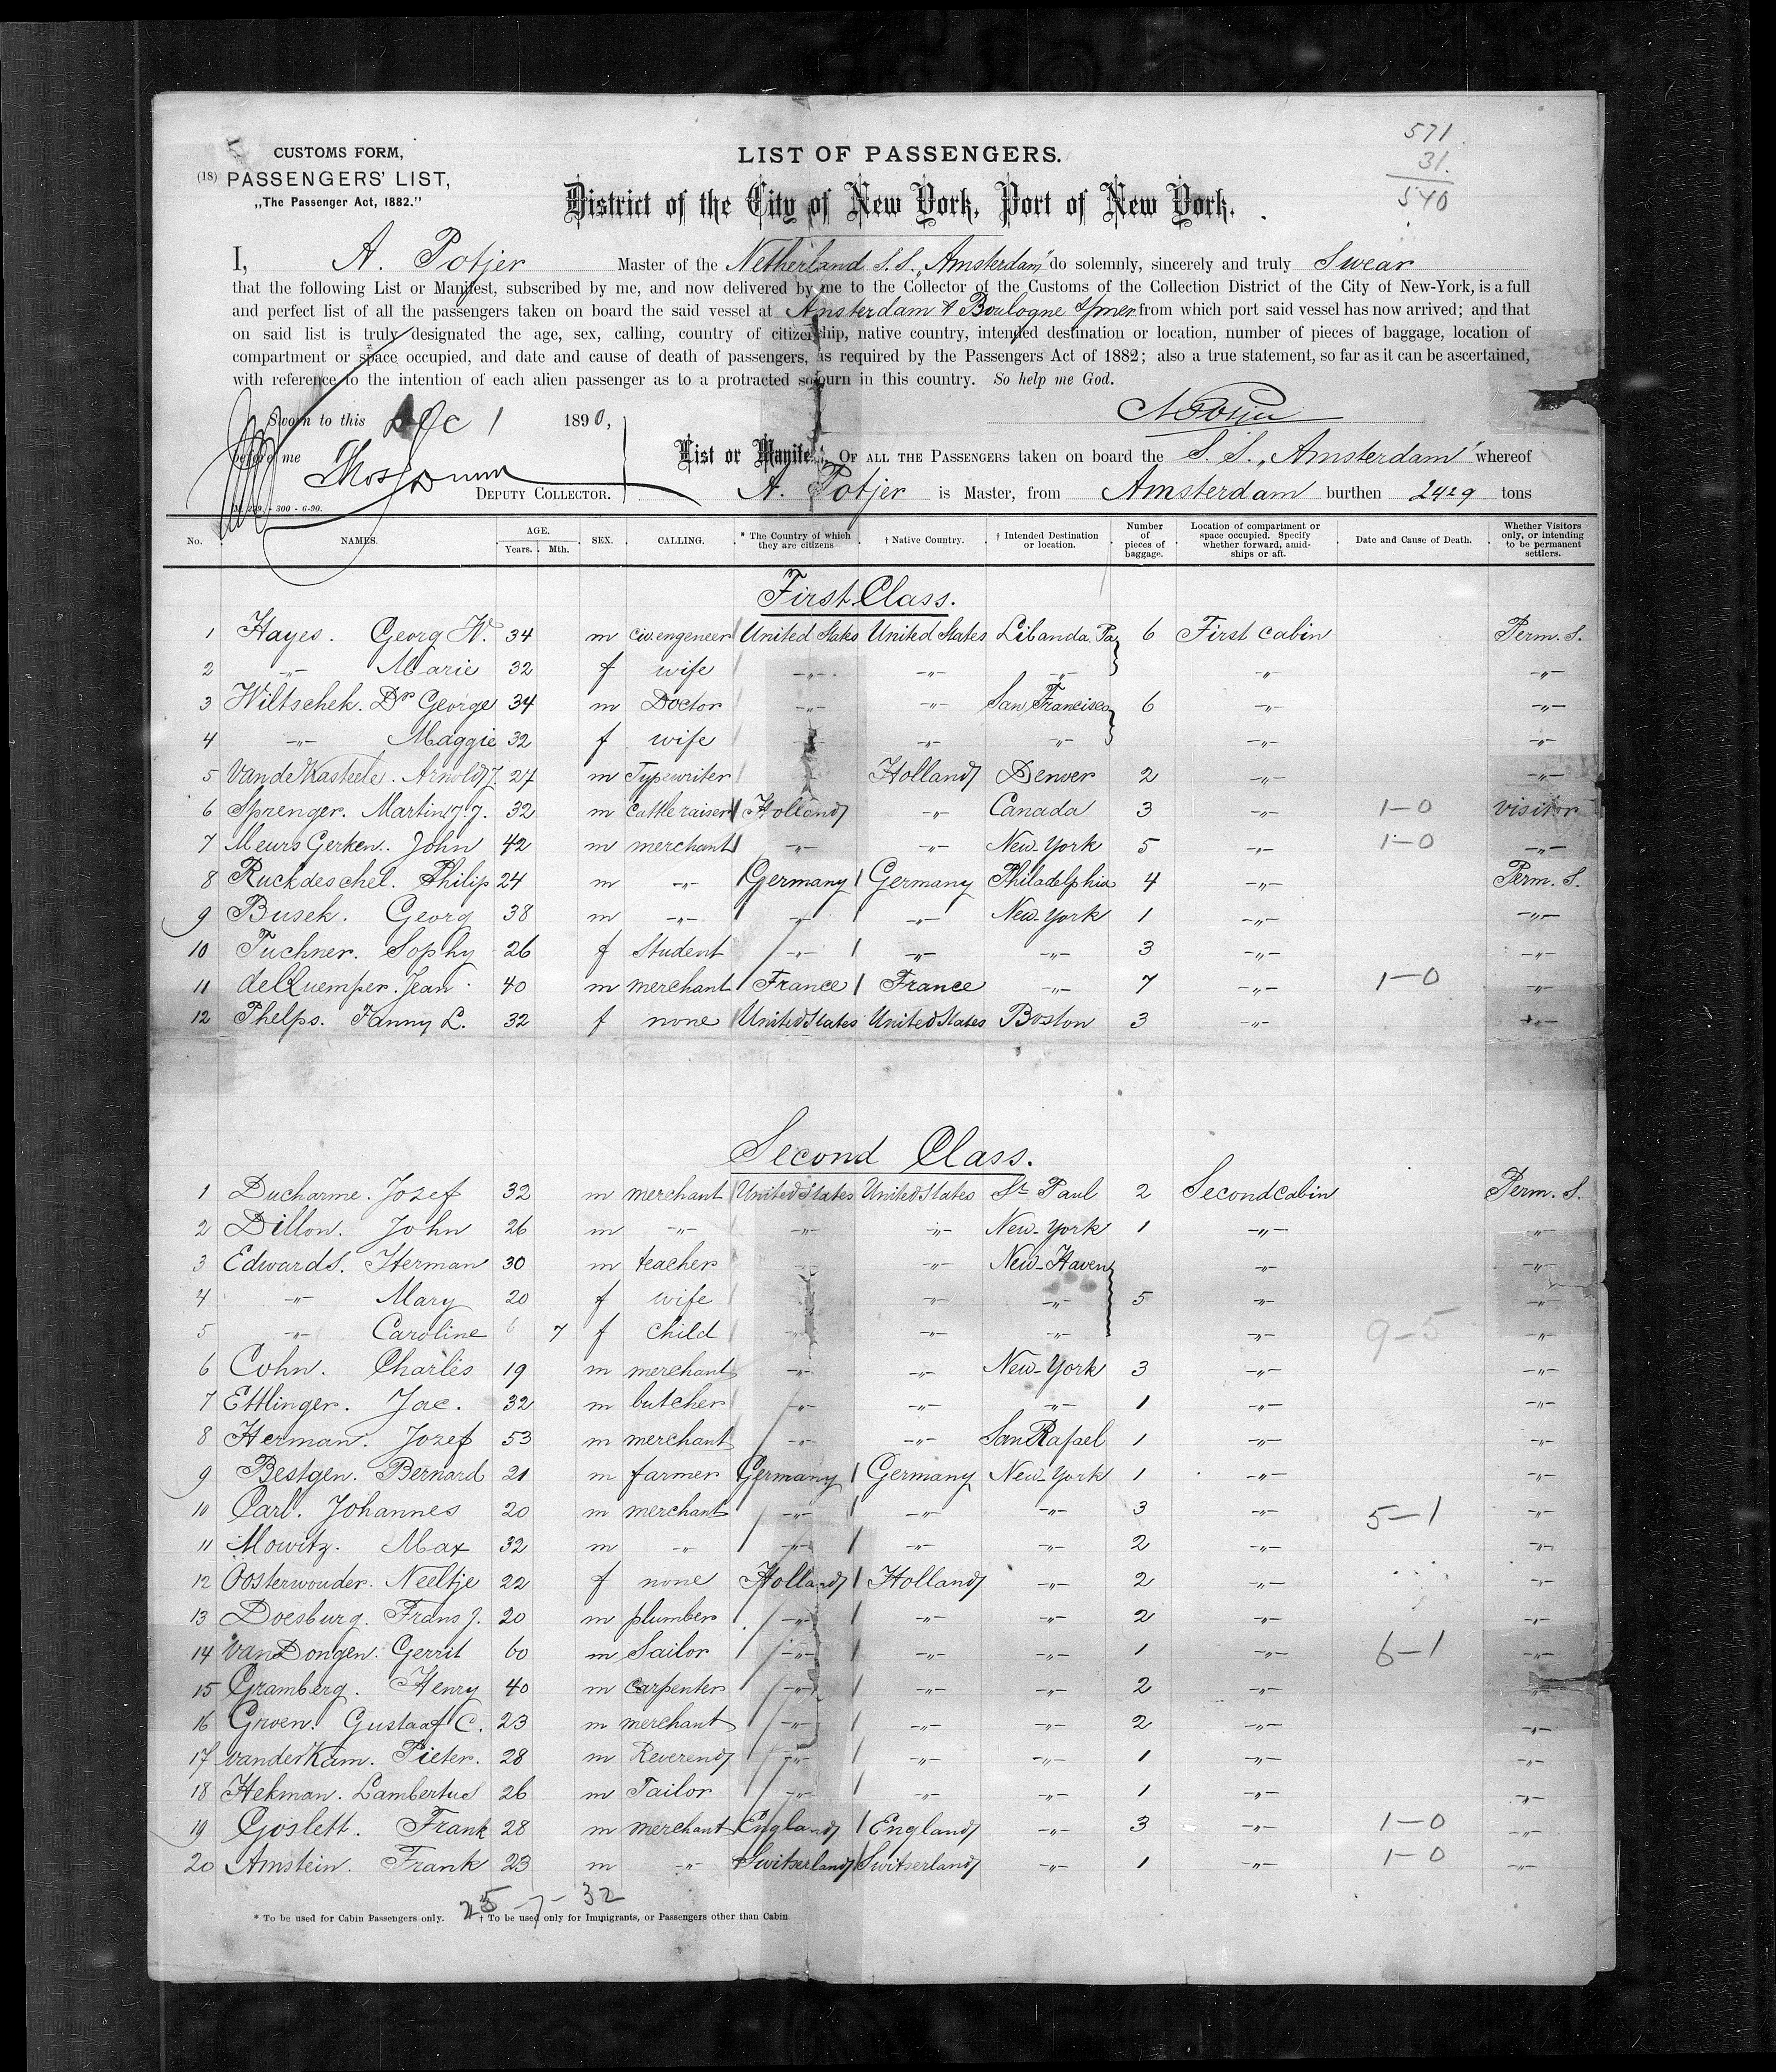 571
31.
540
CUSTOMS FORM,
(18) PASSENGERS' LIST,
„The Passenger Act, 1882."
LIST OF PASSENGERS.
District of the City of New York, Port of New York.
I, A. Potjer Master of the Netherland S.S. „Amsterdam" do solemnly, sincerely and truly Swear
that the following List or Manifest, subscribed by me, and now delivered by me to the Collector of the Customs of the Collection District of the City of New-York, is a full
and perfect list of all the passengers taken on board the said vessel at Amsterdam & Boulogne s/mer from which port said vessel has now arrived; and that
on said list is truly designated the age, sex, calling, country of citizenship, native country, intended destination or location, number of pieces of baggage, location of
compartment or space occupied, and date and cause of death of passengers, as required by the Passengers Act of 1882; also a true statement, so far as it can be ascertained,
with reference to the intention of each alien passenger as to a protracted sojourn in this country. So help me God.
A Potjer
Sworn to this Dec 1 1890,
before me
Thos Dunn
DEPUTY COLLECTOR.
300 - 6-90.
List or Manifest, OF ALL THE PASSENGERS taken on board the S. S. „Amsterdam" whereof
A. Potjer is Master, from Amsterdam burthen 2429 tons
No. NAMES. AGE. Years. Mth. SEX. CALLING. * The Country of which they are citizens † Native Country. † Intended Destination or location. Number of pieces of baggage. Location of compartment or space occupied. Specify whether forward, amidships or aft. Date and Cause of Death. Whether Visitors only, or intending to be permanent settlers.
First Class.
1 Hayes. Georg W. 34 m civ. engeneer United States United States Libanda. Pa 6 First cabin Perm. S.
2 -„- Marie 32 f wife -„- -„- -„- -„- -„-
3 Wiltschek. Dr George 34 m Doctor -„- -„- San Francisco 6 -„- -„-
4 -„- Maggie 32 f wife -„- -„- -„- -„- -„-
5 Van de Kasteele. Arnold J. 27 m Typewriter Holland Denver 2 -„- -„-
6 Sprenger. Martin J. J. 32 m cattle raiser Holland -„- Canada 3 -„- 1-0 visitor
7 Meurs Gerken. John 42 m merchant -„- -„- New-York 5 -„- 1-0 -„-
8 Ruckdeschel. Philip 24 m -„- Germany Germany Philadelphia 4 -„- Perm. S.
9 Busek. Georg 38 m -„- -„- -„- New-York 1 -„- -„-
10 Tuchner. Sophy 26 f Student -„- -„- -„- 3 -„- -„-
11 de Quemper. Jean 40 m merchant France France -„- 7 -„- 1-0 -„-
12 Phelps. Fanny L. 32 f none United States United States Boston 3 -„- -„-
Second Class.
1 Ducharme. Jozef 32 m merchant United States United States St Paul 2 Second cabin Perm. S.
2 Dillon. John 26 m -„- -„- -„- New-York 1 -„- -„-
3 Edwards. Herman 30 m teacher -„- -„- New-Haven -„- -„-
4 -„- Mary 20 f wife -„- -„- -„- 5 -„- -„-
5 -„- Caroline 6 7 f child -„- -„- -„- -„- 9-5 -„-
6 Cohn. Charles 19 m merchant -„- -„- New-York 3 -„- -„-
7 Ettlinger. Jac. 32 m butcher -„- -„- -„- 1 -„- -„-
8 Herman. Jozef 53 m merchant -„- -„- San Rafael 1 -„- -„-
9 Bestgen. Bernard 21 m farmer Germany Germany New-York 1 -„- -„-
10 Carl. Johannes 20 m merchant -„- -„- -„- 3 -„- 5-1 -„-
11 Mowitz. Max 32 m -„- -„- -„- -„- 2 -„- -„-
12 Oosterwouder. Neeltje 22 f none Holland Holland -„- 2 -„- -„-
13 Doesburg. Frans J. 20 m plumber -„- -„- -„- 2 -„- -„-
14 van Dongen. Gerrit 60 m Sailor -„- -„- -„- 1 -„- 6-1 -„-
15 Gramberg. Henry 40 m carpenter -„- -„- -„- 2 -„- -„-
16 Groen. Gustaaf C. 23 m merchant -„- -„- -„- 2 -„- -„-
17 van der Kam. Pieter. 28 m Reverend -„- -„- -„- 1 -„- -„-
18 Hekman. Lambertus 26 m Tailor -„- -„- -„- 1 -„- -„-
19 Goslett. Frank 28 m merchant England England -„- 3 -„- 1-0 -„-
20 Amstein. Frank 23 m -„- Switserland Switserland -„- 1 -„- 1-0 -„-
25 - 7 - 32
* To be used for Cabin Passengers only. † To be used only for Immigrants, or Passengers other than Cabin.